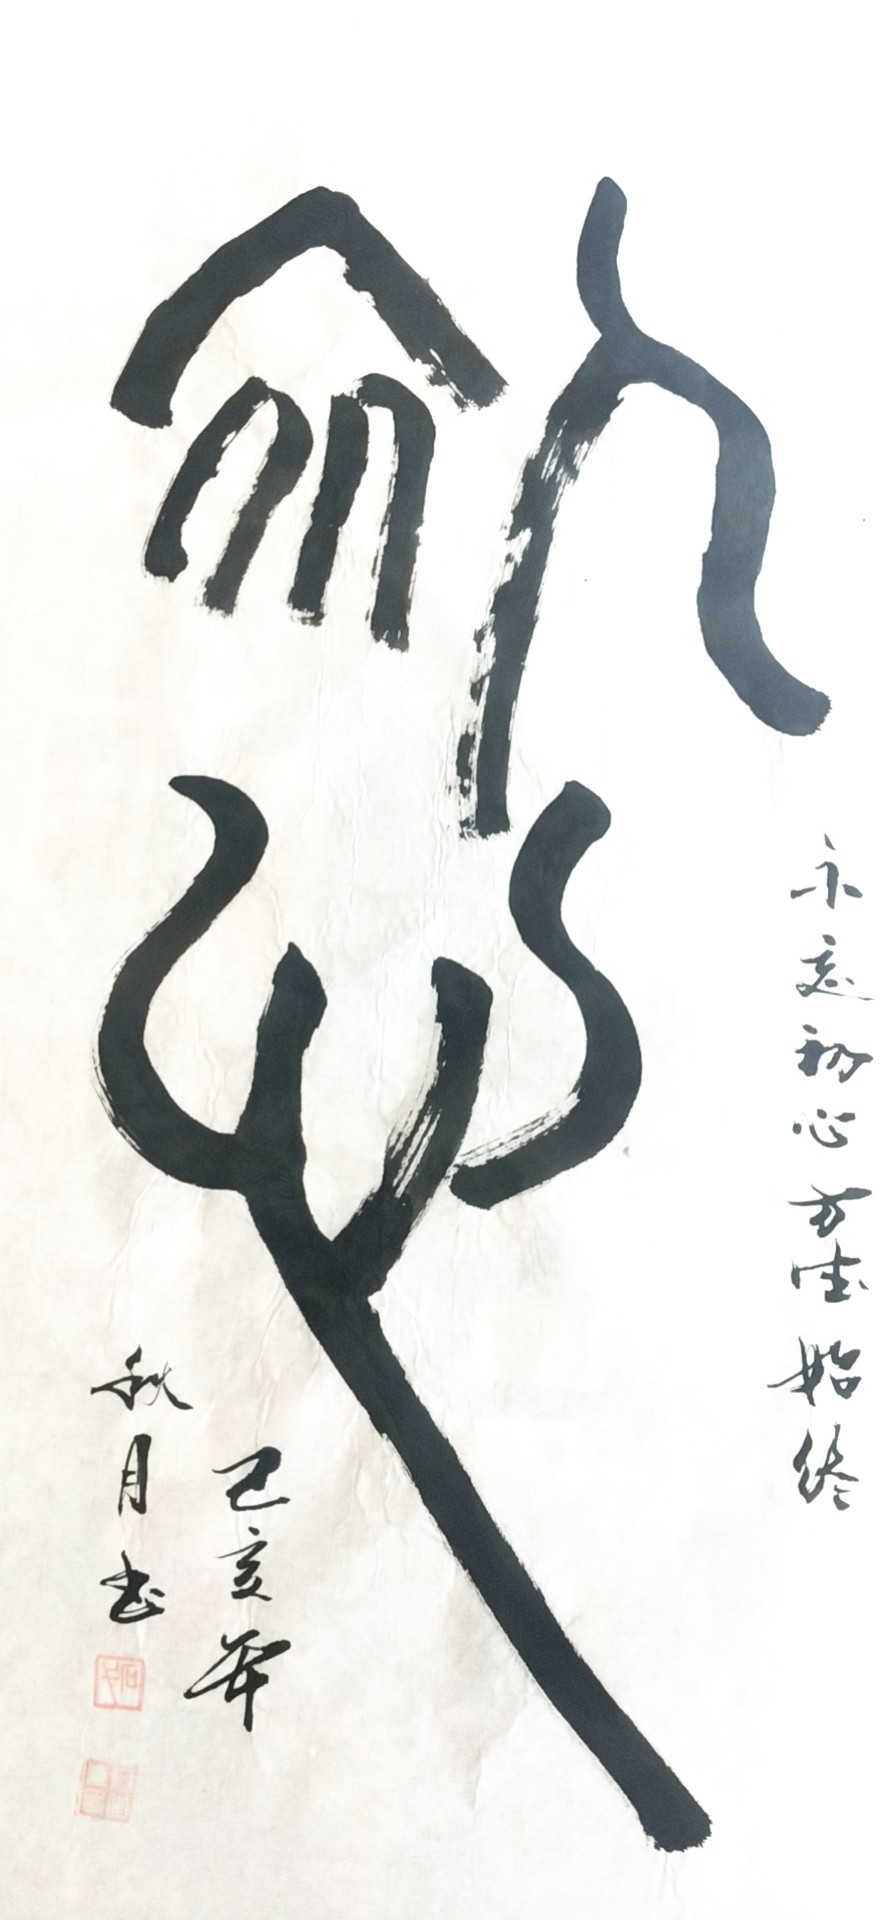 不忘初心方得始终
初心
己亥年
秋月书